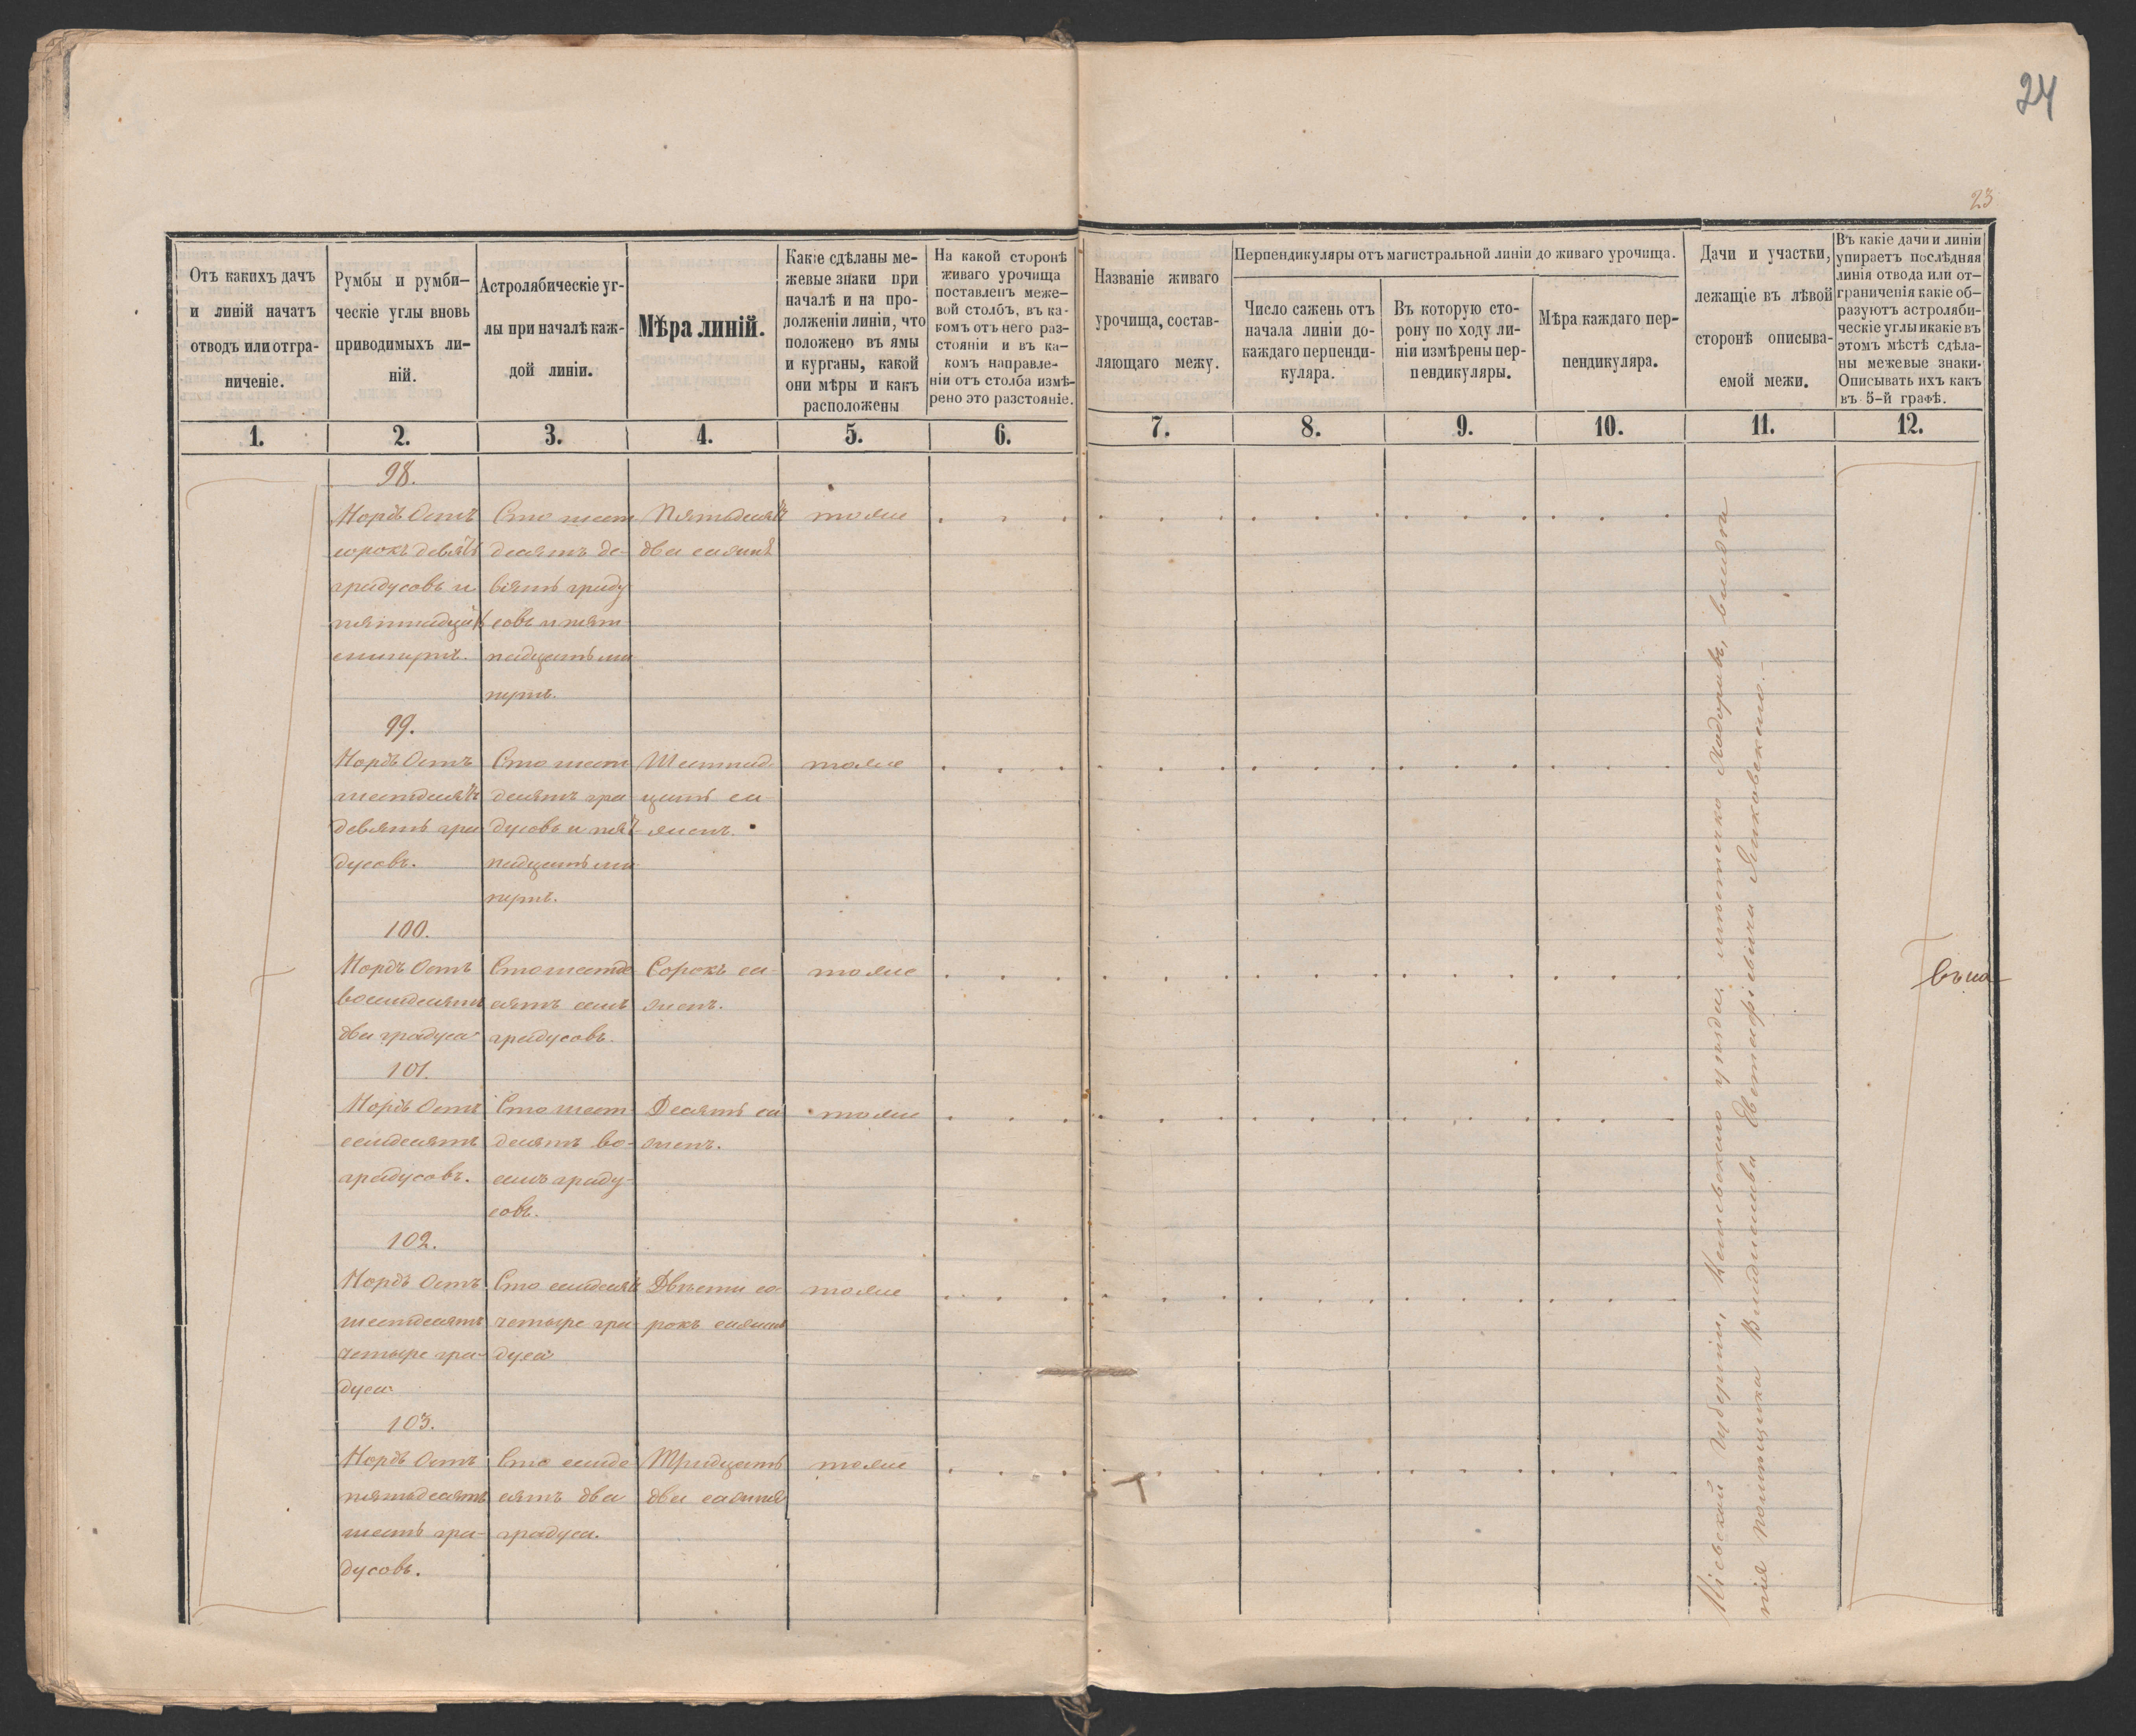 24
23
Отъ какихъ дачъ
и линій начатъ
отводъ или отгра-
ниченіе.
Румбы и румби-
ческіе углы вновь
приводимыхъ ли-
ній.
Астролябическіе уг-
лы при началѣ каж-
дой линіи.
Мѣра линій.
Какіе сдѣланы ме-
жевые знаки при
началѣ и на про-
долженіи линіи, что
положено въ ямы
и курганы, какой
они мѣры и какъ
расположены
На какой сторонѣ
живаго урочища
поставленъ меже-
вой столбъ, въ ка-
комъ отъ него раз-
стояніи и въ ка-
комъ направле-
ніи отъ столба измѣ-
рено это разстояніе.
Названіе живаго
урочища, состав-
ляющаго межу.
Перпендикуляры отъ магистральной линіи до живаго урочища.
Число сажень отъ
начала линіи до-
каждаго перпенди-
куляра.
Въ которую сто-
рону по ходу ли-
ніи измѣрены пер-
пендикуляры.
Мѣра каждаго пер-
пендикуляра.
Дачи и участки,
лежащіе въ лѣвой
сторонѣ описыва-
емой межи.
Въ какіе дачи и линіи
упираетъ послѣдняя
линія отвода или от-
граниченія какіе об-
разуютъ астроляби-
ческіе углы и какіе въ
этомъ мѣстѣ сдѣла-
ны межевые знаки.
Описывать ихъ какъ
въ 5-й графѣ.
1. 2. 3. 4. 5. 6. 7. 8. 9. 10. 11. 12.
98.
Нордъ Остъ
сорокъ девять
градусовъ и
пятнадцать
минутъ.
Сто шест
десятъ де-
вять граду
совъ и пят
надцать ми
нутъ.
Пятьдесятъ
два сажня
тоже
99.
Нордъ Остъ
шестдесятъ
девять гра
дусовъ.
Сто шест
десятъ гра
дусовъ и пят
надцать ми
нутъ.
Шестнад
цать са
женъ.
тоже
100.
Нордъ Остъ
восемдесятъ
два градуса
Сто шестде
сятъ семь
градусовъ.
Сорокъ са-
женъ.
тоже
101.
Нордъ Остъ
семдесятъ
градусовъ.
Сто шест
десятъ во-
семь граду-
совъ.
Десять са
женъ.
тоже
102.
Нордъ Остъ
шестдесятъ
четыре гра-
дуса
Сто семдесятъ
четыре гра-
дуса
Двѣсти со-
рокъ сажень
тоже
103.
Нордъ Остъ
пятьдесятъ
шесть гра-
дусовъ.
Сто семде
сятъ два
градуса.
Тридцать
два сажня
тоже
Кіевской губерніи, Каневского уѣзда, мѣстечко владѣ
нія помѣщика Евстафіевича Янковского.